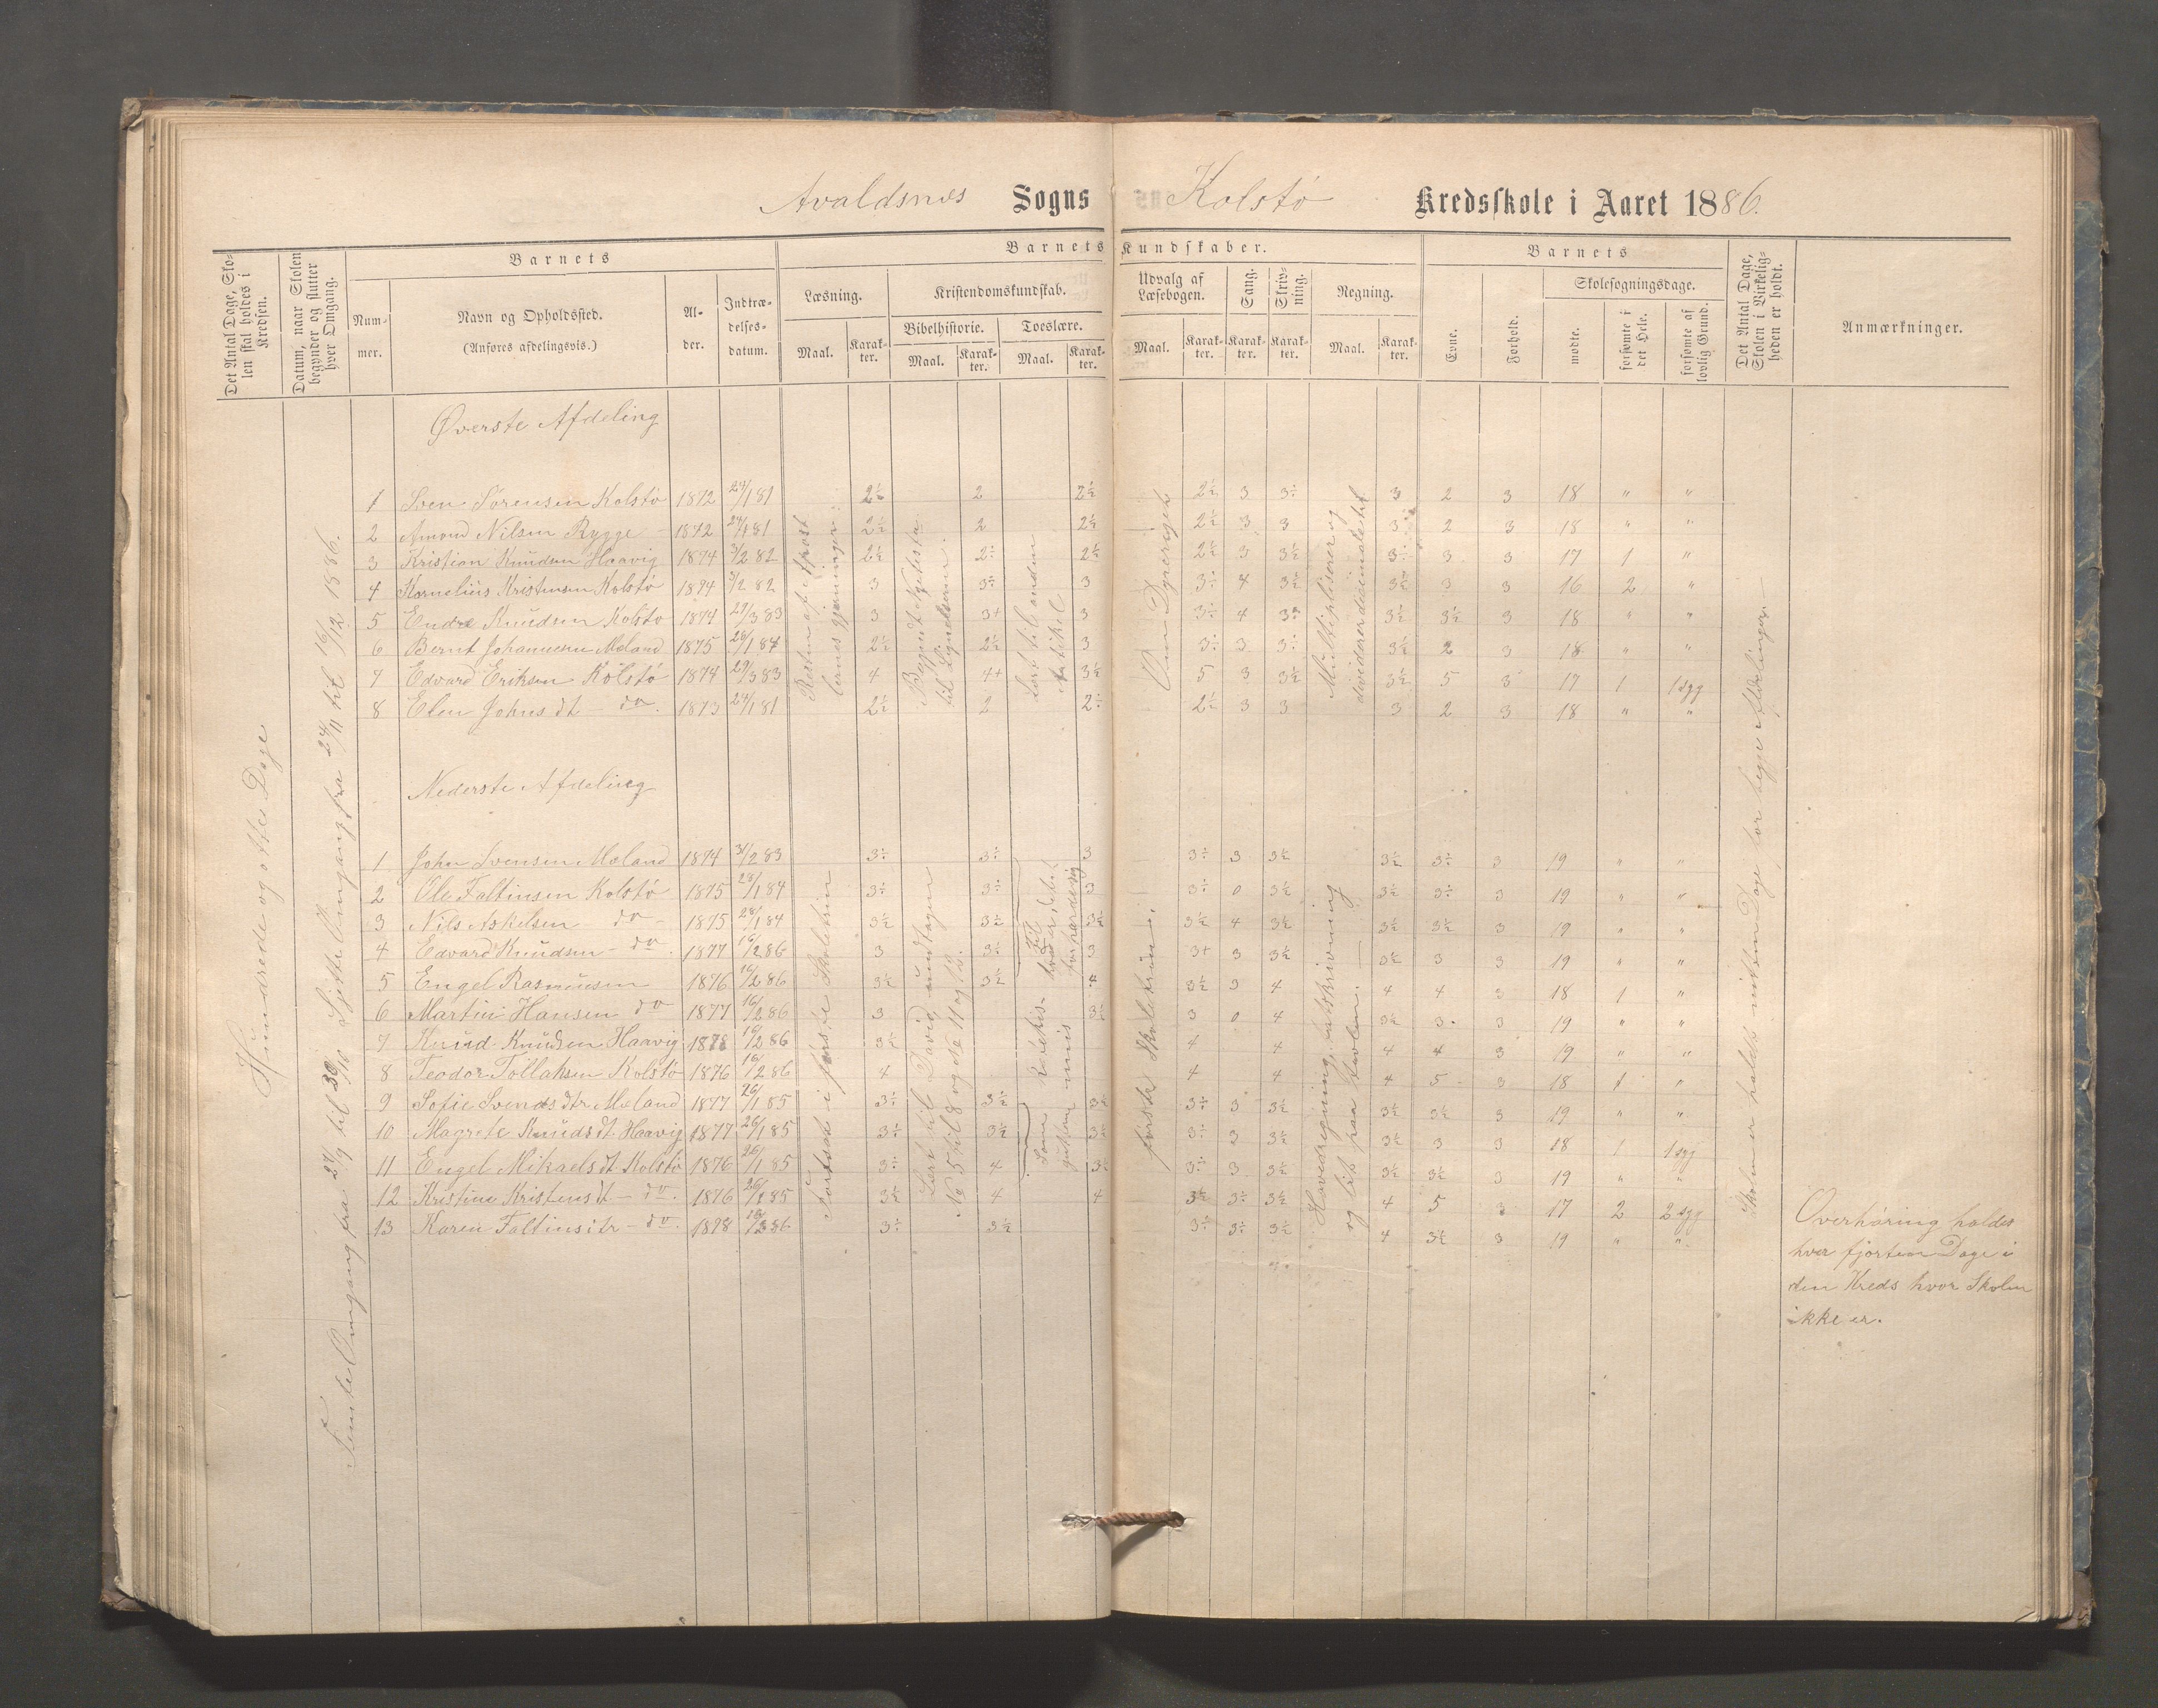 Avaldsnes Sogns Kolstø Kredsskole i Aaret 1886.
Det Antal Dage, Skolen skal holdes i Kredsen.
Datum, naar Skolen begynder og slutter hver Omgang.
Barnets
Nummer.
Navn og Opholdssted.
(Anføres afdelingsvis.)
Alder.
Indtrædelsesdatum.
Barnets Kundskaber.
Læsning.
Maal. Karakter.
Kristendomskundskab.
Bibelhistorie. Troeslære.
Maal. Karakter. Maal. Karakter.
Udvalg af Læsebogen.
Maal. Karakter.
Sang. Karakter.
Skrivning. Karakter.
Regning.
Maal. Karakter.
Barnets
Evne.
Forhold.
Skolesøgningsdage.
mødte.
forsømte i det Hele.
forsømte af lovlig Grund.
Det Antal Dage, Skolen i Virkeligheden er holdt.
Anmærkninger.
Hundrede og otte Dage
Femte Omgang fra 27/9 til 30/10 Sjette Omgang fra 24/11 til 16/12 1886.
Øverste Afdeling
1 Sven Sørensen Kolstø 1872 24/1 81 2½ 2 2½ 2½ 3 3÷ 3 2 3 18 " "
2 Amond Nilsen Rygge 1872 24/1 81 2½ 2 2½ 2½ 3 3 3 2 3 18 " "
3 Kristian Knudsen Haavig 1874 3/2 82 2½ 2÷ 2½ 2½ 3 3½ 3÷ 3 3 17 1 "
4 Kornelius Kristensen Kolstø 1874 3/2 82 3 3÷ 3 3÷ 4 3½ 3½ 3 3 16 2 "
5 Endre Knudsen Kolstø 1874 29/3 83 3 3+ 3 3÷ 4 3÷ 3½ 3½ 3 18 " "
6 Bernt Johannesen Meland 1875 28/1 84 2½ 2½ 3 3÷ 3 3÷ 3½ 2 3 18 " "
7 Edvard Eriksen Kolstø 1874 29/3 83 4 4+ 3½ 5 3 3½ 3½ 5 3 17 1 1 syg
8 Elen Johnsdt do. 1873 24/1 81 2½ 2 2÷ 2½ 3 3 3 2 3 18 " "
Resten af Apostlernes gjerninger.
Begyndt Nytestm. til Lignelserne.
Læst til anden Artikel
Om Dyreriget
Multipliserer og dividerer disimalestal
Nederste Afdeling
1 John Svensen Meland 1874 3/2 83 3÷ 3÷ 3 3÷ 3 3½ 3½ 3÷ 3 19 " "
2 Ole Faltinsen Kolstø 1875 28/1 84 3÷ 3÷ 3 3÷ 0 3½ 3½ 3÷ 3 19 " "
3 Nils Askelsen do 1875 28/1 84 3½ 3½ 3½ 3½ 4 3½ 3½ 3½ 3 19 " "
4 Edvard Knudsen do 1877 16/2 86 3 3÷ 3 3+ 3 3½ 3½ 3 3 19 " "
5 Engel Rasmusen 1876 16/2 86 3½ 3½ 4 3½ 3 4 4 4 3 18 1 "
6 Martin Hansen do 1877 16/2 86 3 3½ 3 0 4 3½ 3 3 19 " "
7 Knud Knudsen Haavig 1878 16/2 86 3½ 4 4 4 4 3 19 " "
8 Teodor Tollaksen Kolstø 1876 16/2 86 4 4 4 4 5 3 18 1 "
9 Sofie Svendsdtr Meland 1877 26/1 85 3÷ 3½ 3½ 3÷ 3 3½ 3½ 3½ 3 19 " "
10 Magrete Knudsdt. Haavig 1877 26/1 85 3÷ 3½ 3½ 3÷ 3 3½ 3½ 3 3 18 1 1 syg
11 Engel Mikaelsdt Kolstø 1876 26/1 85 3÷ 4 3½ 3÷ 3 3½ 3½ 3½ 3 19 " "
12 Kristine Kristensdt do. 1876 26/1 85 3½ 4 4 3½ 3÷ 3½ 4 5 3 17 2 2 syg
13 Karen Faltinsdtr do. 1878 3 86 3÷ 3½ 3÷ 3÷ 3½ 4 3½ 3 19 " "
Fortsat i første Skoletrin
Lært til David, undtagen No 5 til 8 og se 11 og 12.
første Skoletrin.
Hovedregning, talskrivning og lidt paa tavlen.
Skolen er holdt nitten Dage for begge Afdelinger
Overhøring holdes
hver fjorten Dage i
den Kreds hvor Skolen
ikke er.